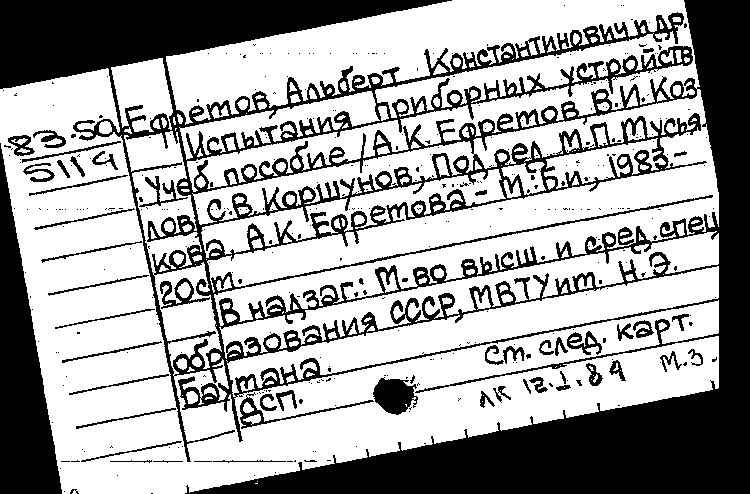 83.5a Ефретов, Альберт Константинович и др.
5119 Испытания приборных устройств
: Учеб. пособие / А.К. Ефретов, В.И. Коз-
лов, С.В. Коршунов; Под ред М.П. Мусья-
кова, А.К. Ефретова - М.: Б.и., 1983.-
20ст.
В надзаг.: М-во высш. и сред. спец
образования СССР, МВТУ ит. Н.Э.
Баутана.
ДСП.
Ст. след. карт.
ЛК 12.I.84 М.З.